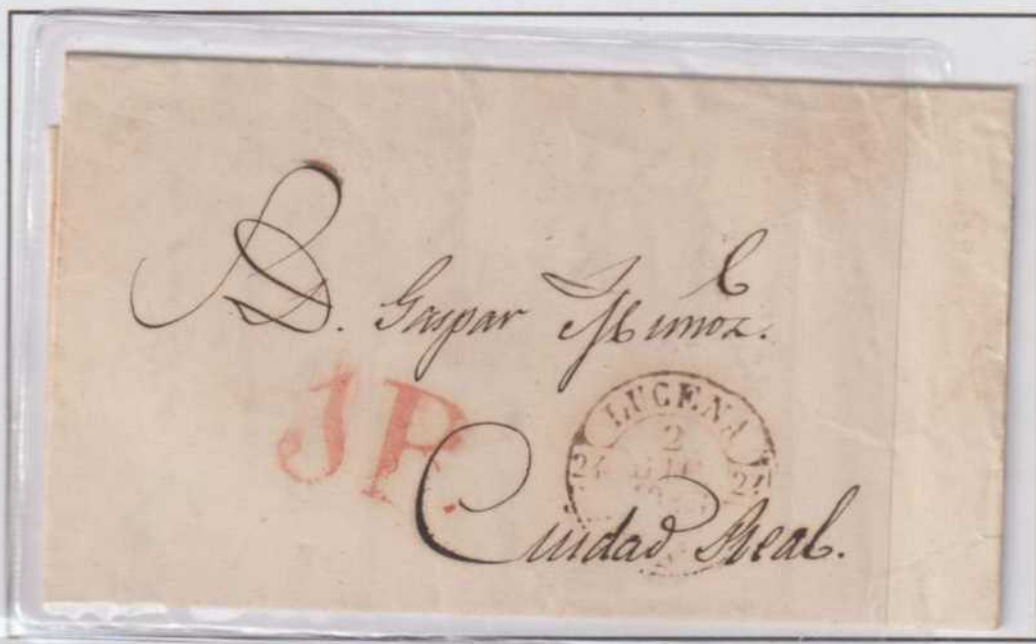 D. Gaspar Muñoz.
1R.
LUCENA
2
24 24
Ciudad Real.